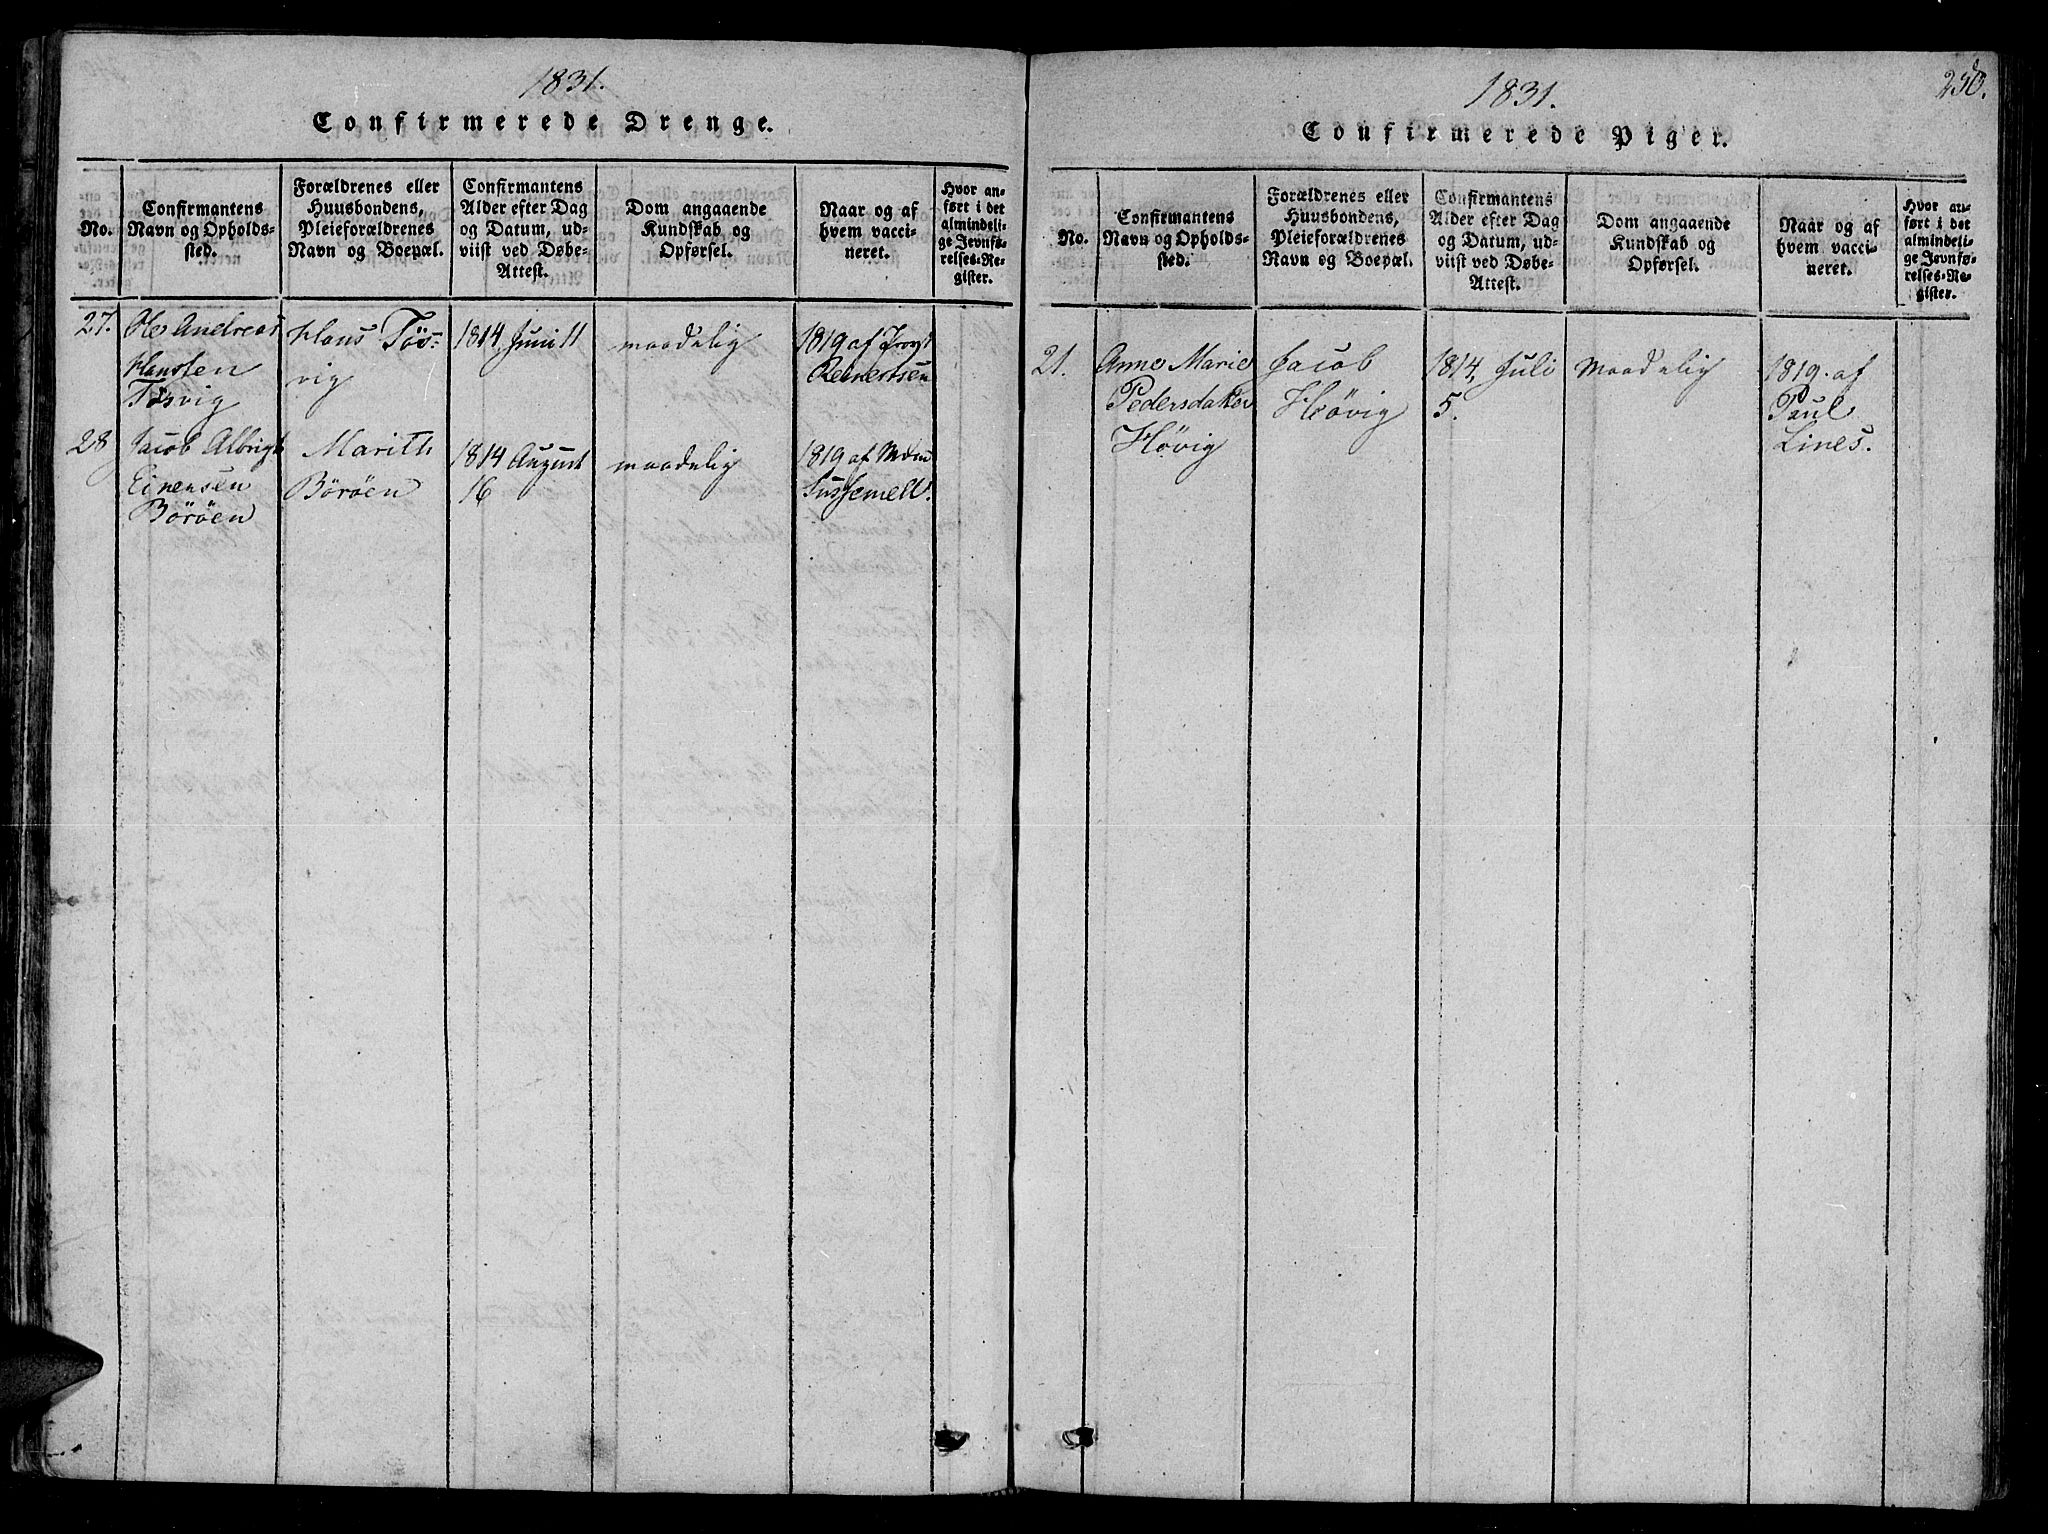 1831.
Confirmerede Drenge.
No.
Confirmantens
Navn og Opholds-
sted.
Forældrenes eller
Huusbondens,
Pleieforældrenes
Navn og Boepæl.
Confirmantens
Alder efter Dag
og Datum, ud-
viist ved Døbe-
Attest.
Dom angaaende
Kundskab og
Opførsel.
Naar og af
hvem vacci-
neret.
Hvor an-
ført i det
almindeli-
ge Jevnfø-
relses-Re-
gister.
27. Ole Andreas Hans Tös- 1814, Juni 11 maadelig 1819 af Provst
Hanssen vig Reinertsen
Tösvig
28 Jacob Albrigt Marith 1814 August maadelig 1819 af
Einersen Böröen 16 Sussemell.
Böröen
1831.
250.
Confirmerede Piger.
No.
Confirmantens
Navn og Opholds-
sted.
Forældrenes eller
Huusbondens,
Pleieforældrenes
Navn og Boepæl.
Confirmantens
Alder efter Dag
og Datum, ud-
viist ved Døbe-
Attest.
Dom angaaende
Kundskab og
Opførsel.
Naar og af
hvem vacci-
neret.
Hvor an-
ført i det
almindeli-
ge Jevnfø-
relses-Re-
gister.
21. Anne Marie Jacob 1814, Juli maadelig 1819. af
Pedersdatter Hövig 5. Paul
Hövig Lines.